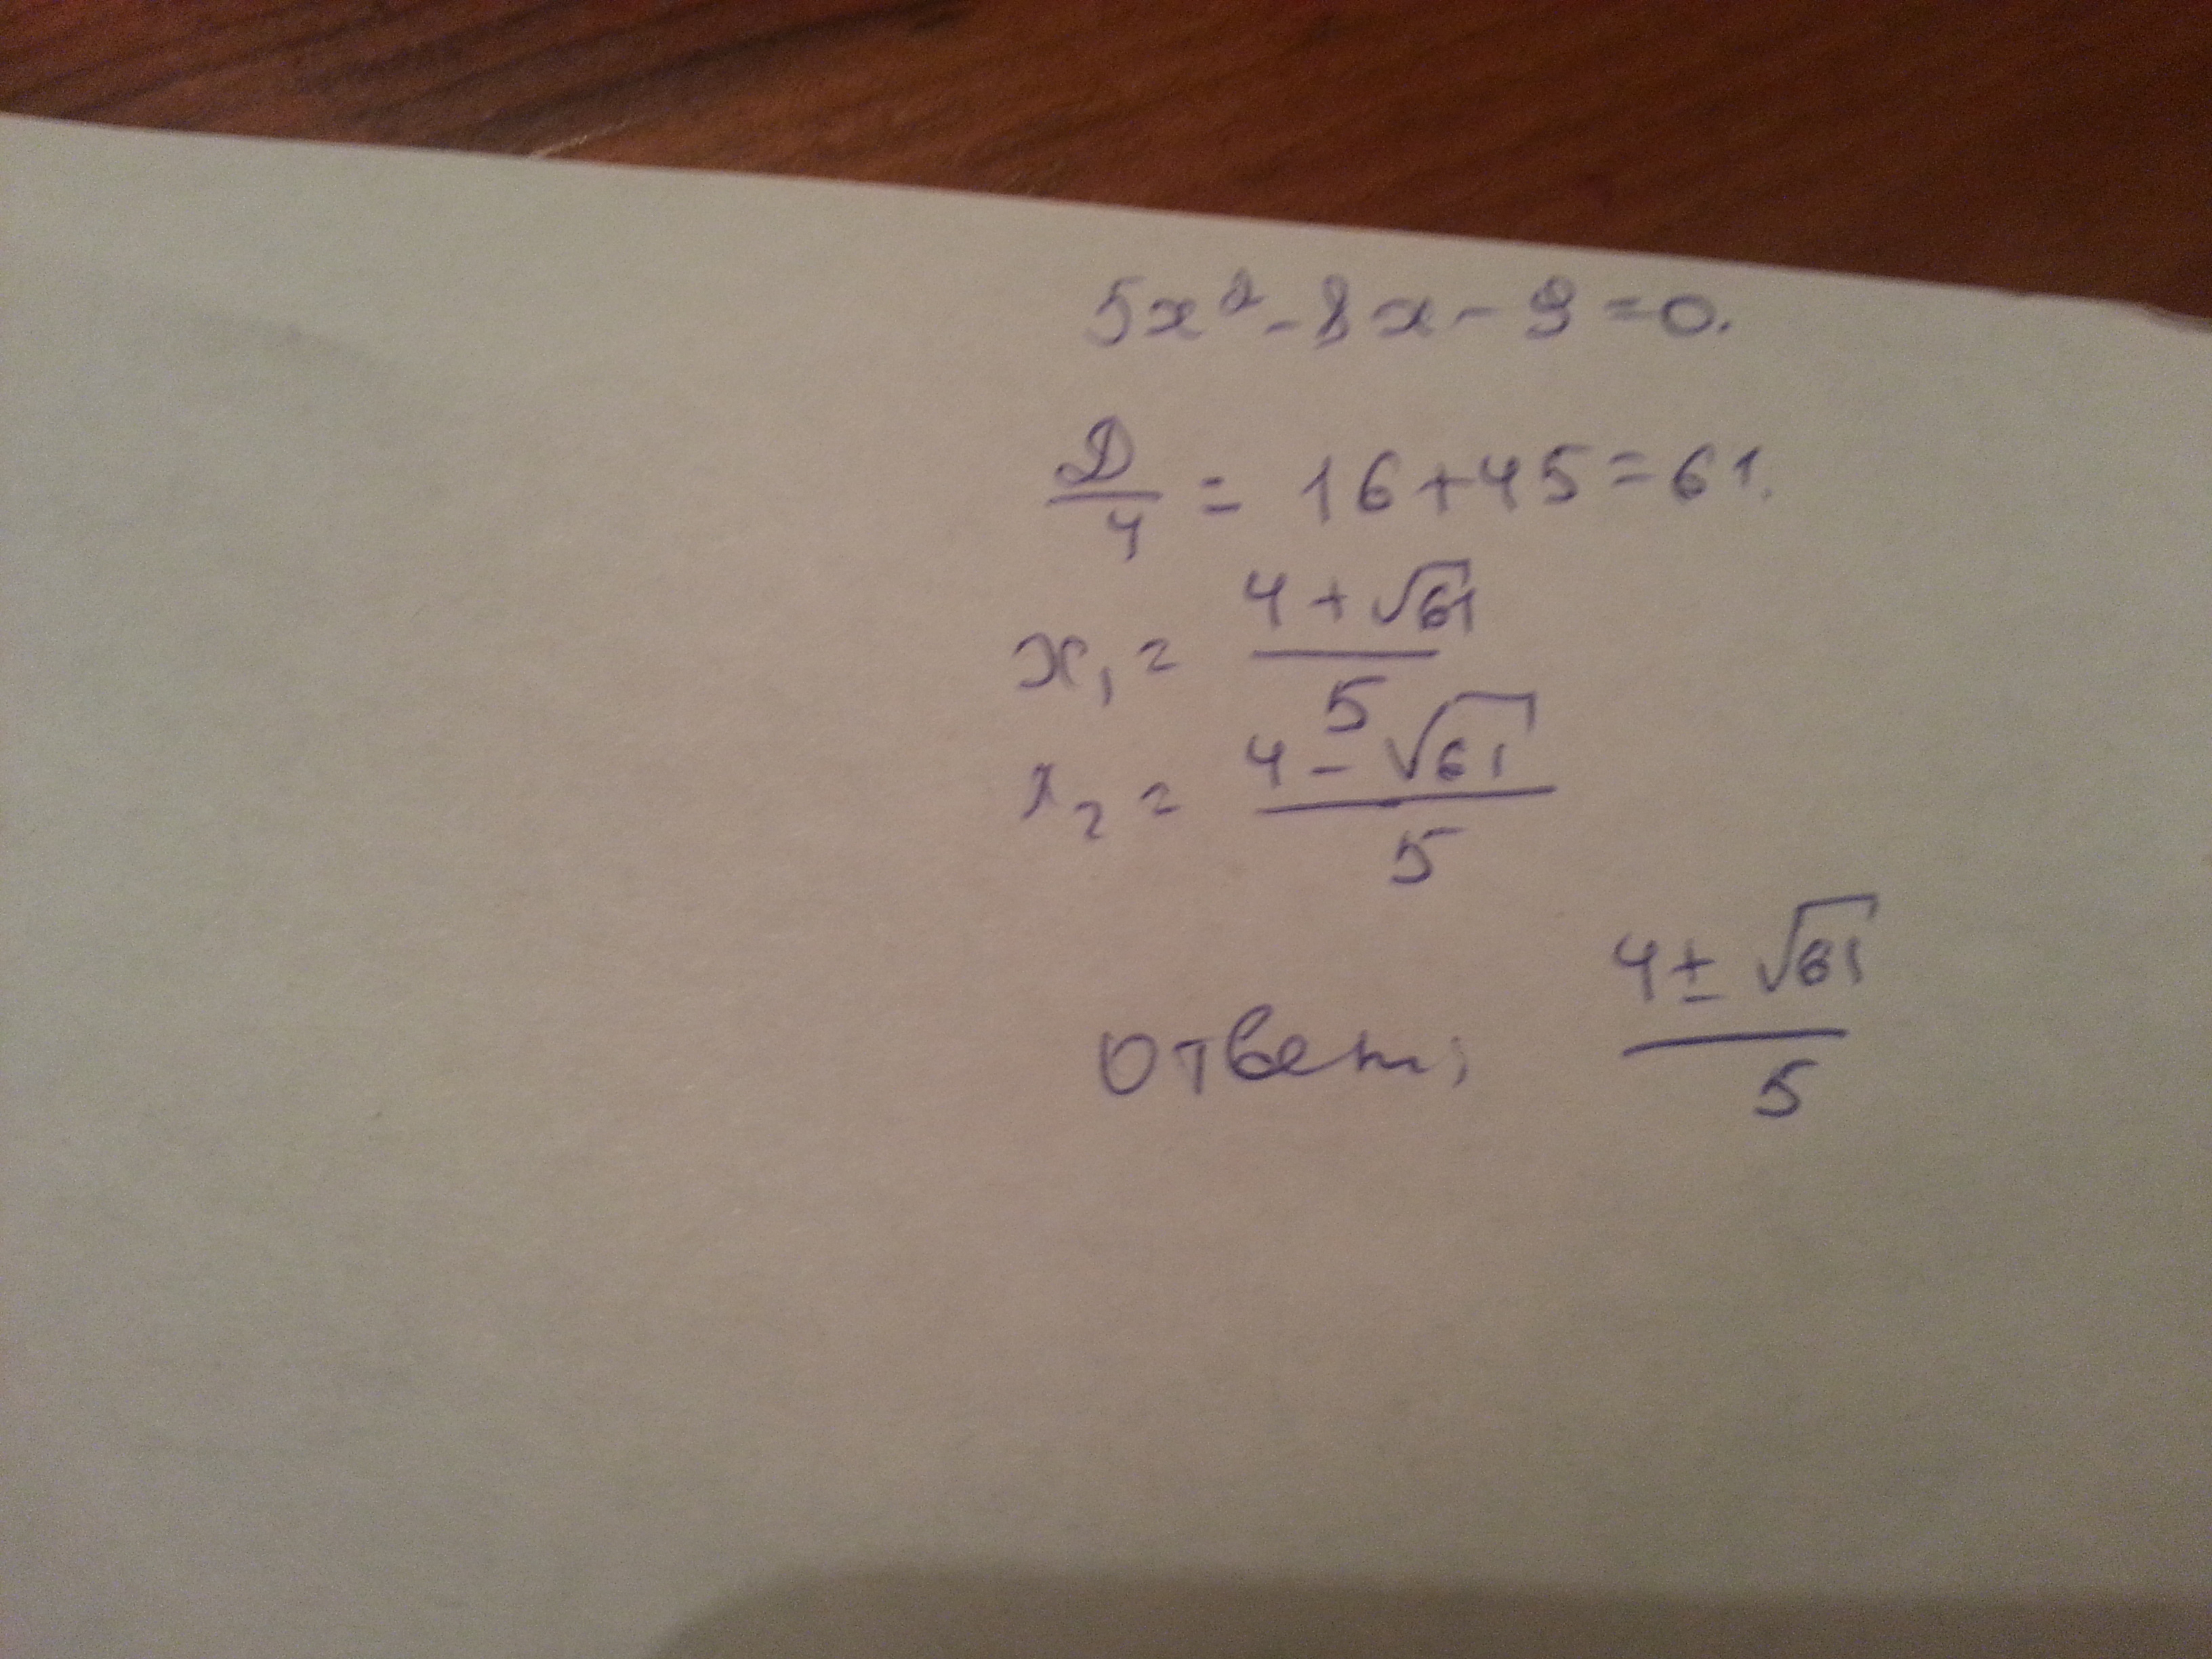 5x² - 8x - 9 = 0.
D/4 = 16 + 45 = 61.
x₁ = (4 + √61)/5
x₂ = (4 - √61)/5
Ответ: (4 ± √61)/5